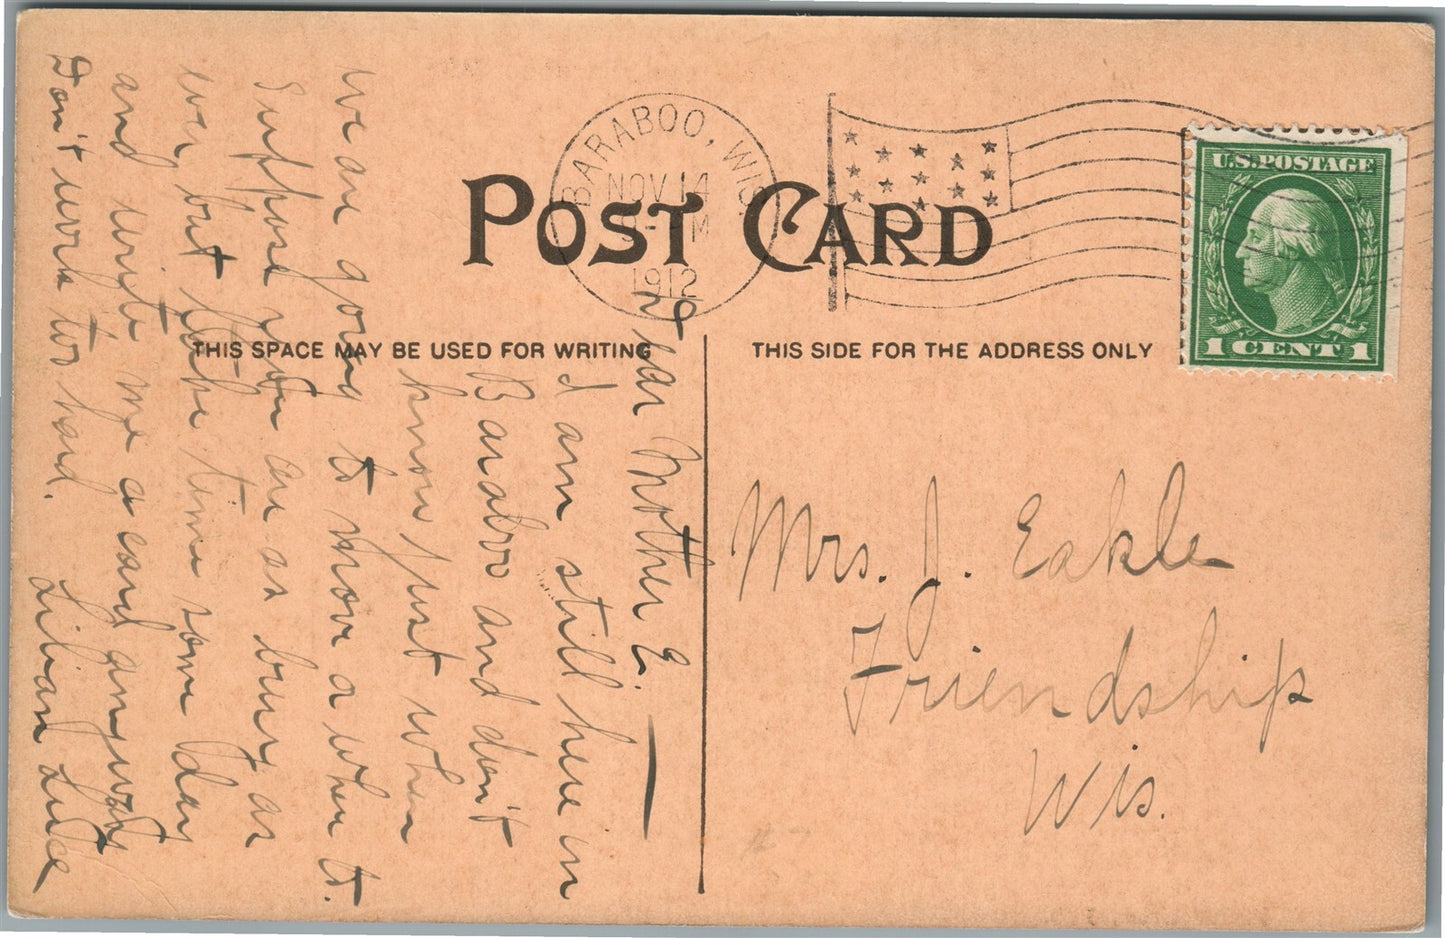 POST CARD
BARABOO, WIS.
NOV 14
M
1912
U.S. POSTAGE
1 CENT 1
THIS SPACE MAY BE USED FOR WRITING
THIS SIDE FOR THE ADDRESS ONLY
Dear Mother E.
I am still here in
Baraboo and don't
know just when
we are going to move or when to.
Suppose you are as busy as
ever, but take time some day
and write me a card anyway
Don't work too hard.
Lilian
Mrs. J. Eakle
Friendship
Wis.